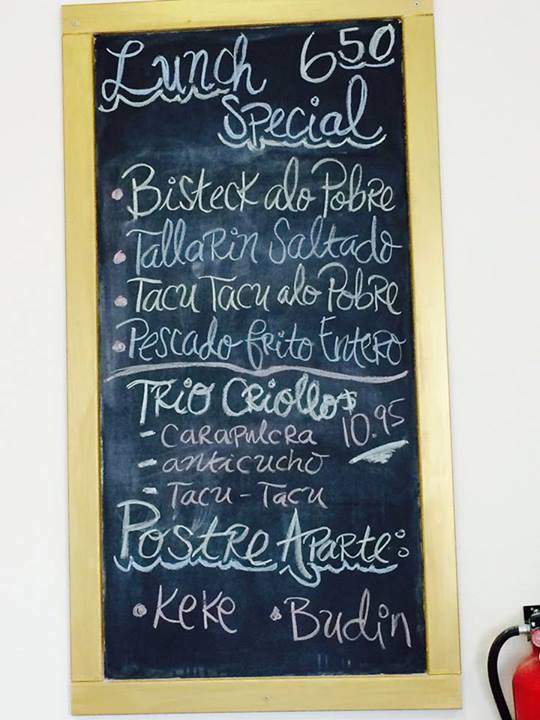 Lunch 6 50
Special
• Bisteck alo Pobre
• Tallarin Saltado
• Tacu Tacu alo Pobre
• Pescado frito Entero
Trio Criollo $ 10.95
- Carapulcra
- anticucho
- Tacu - Tacu
Postre Aparte:
• Keke • Budin